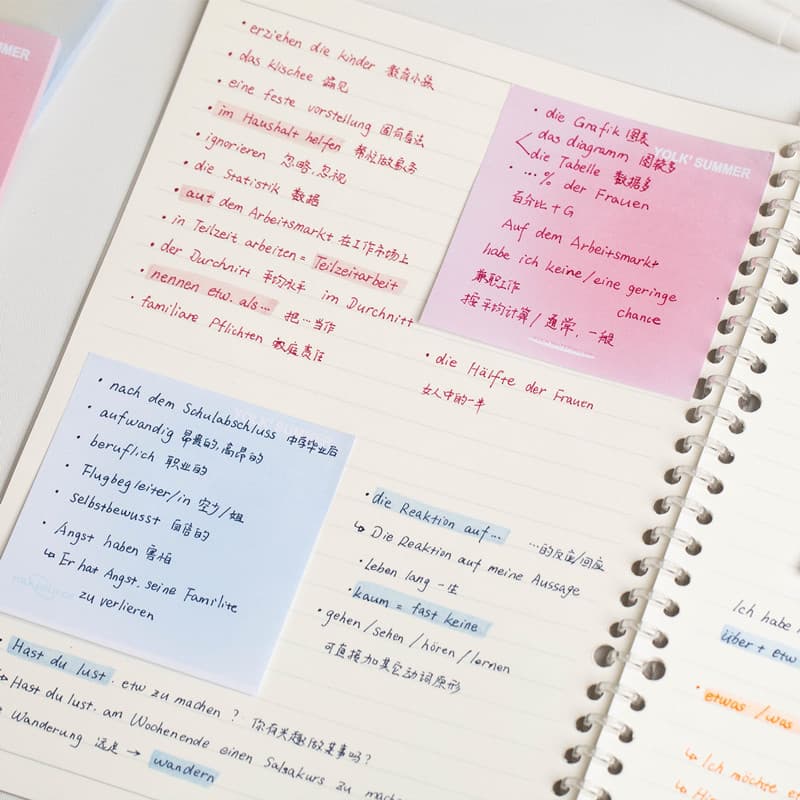 MER
• erziehen die kinder 教育小孩
• das klischee 偏见
• eine feste vorstellung 固有看法
• im Haushalt helfen 帮忙做家务
• ignorieren 忽略,忽视
• die Statistik 数据
• auf dem Arbeitsmarkt 在工作市场上
• in Teilzeit arbeiten = Teilzeitarbeit
• der Durchnitt 平均水平 im Durchnitt
• nennen etw. als... 把...当作
• familiare Pflichten 家庭责任
YOLK' SUMMER
• die Grafik 图表
das diagramm 图表
die Tabelle 数据
• ...% der Frauen
百分比+G
Auf dem Arbeitsmarkt
habe ich keine/eine geringe
chance
兼职工作
按平均计算/通常,一般
• die Hälfte der Frauen
女人中的一半
• nach dem Schulabschluss 中学毕业后
• aufwandig 昂贵的,高昂的
• beruflich 职业的
• Flugbegleiter/in 空少/姐
• selbstbewusst 自信的
• Angst haben 害怕
↳ Er hat Angst. seine Familite
zu verlieren
• die Reaktion auf... ...的反应/回应
↳ Die Reaktion auf meine Aussage
• Leben lang 一生
• kaum = fast keine
• gehen/sehen/hören/lernen
可直接加其它动词原形
• Hast du lust. etw zu machen? 你有兴趣做某事吗?
↳ Hast du lust. am Wochenende einen Salsakurs zu mach
Wanderung 远足 → wandern
Ich habe
über + etw
• etwas /was
↳ Ich möchte et